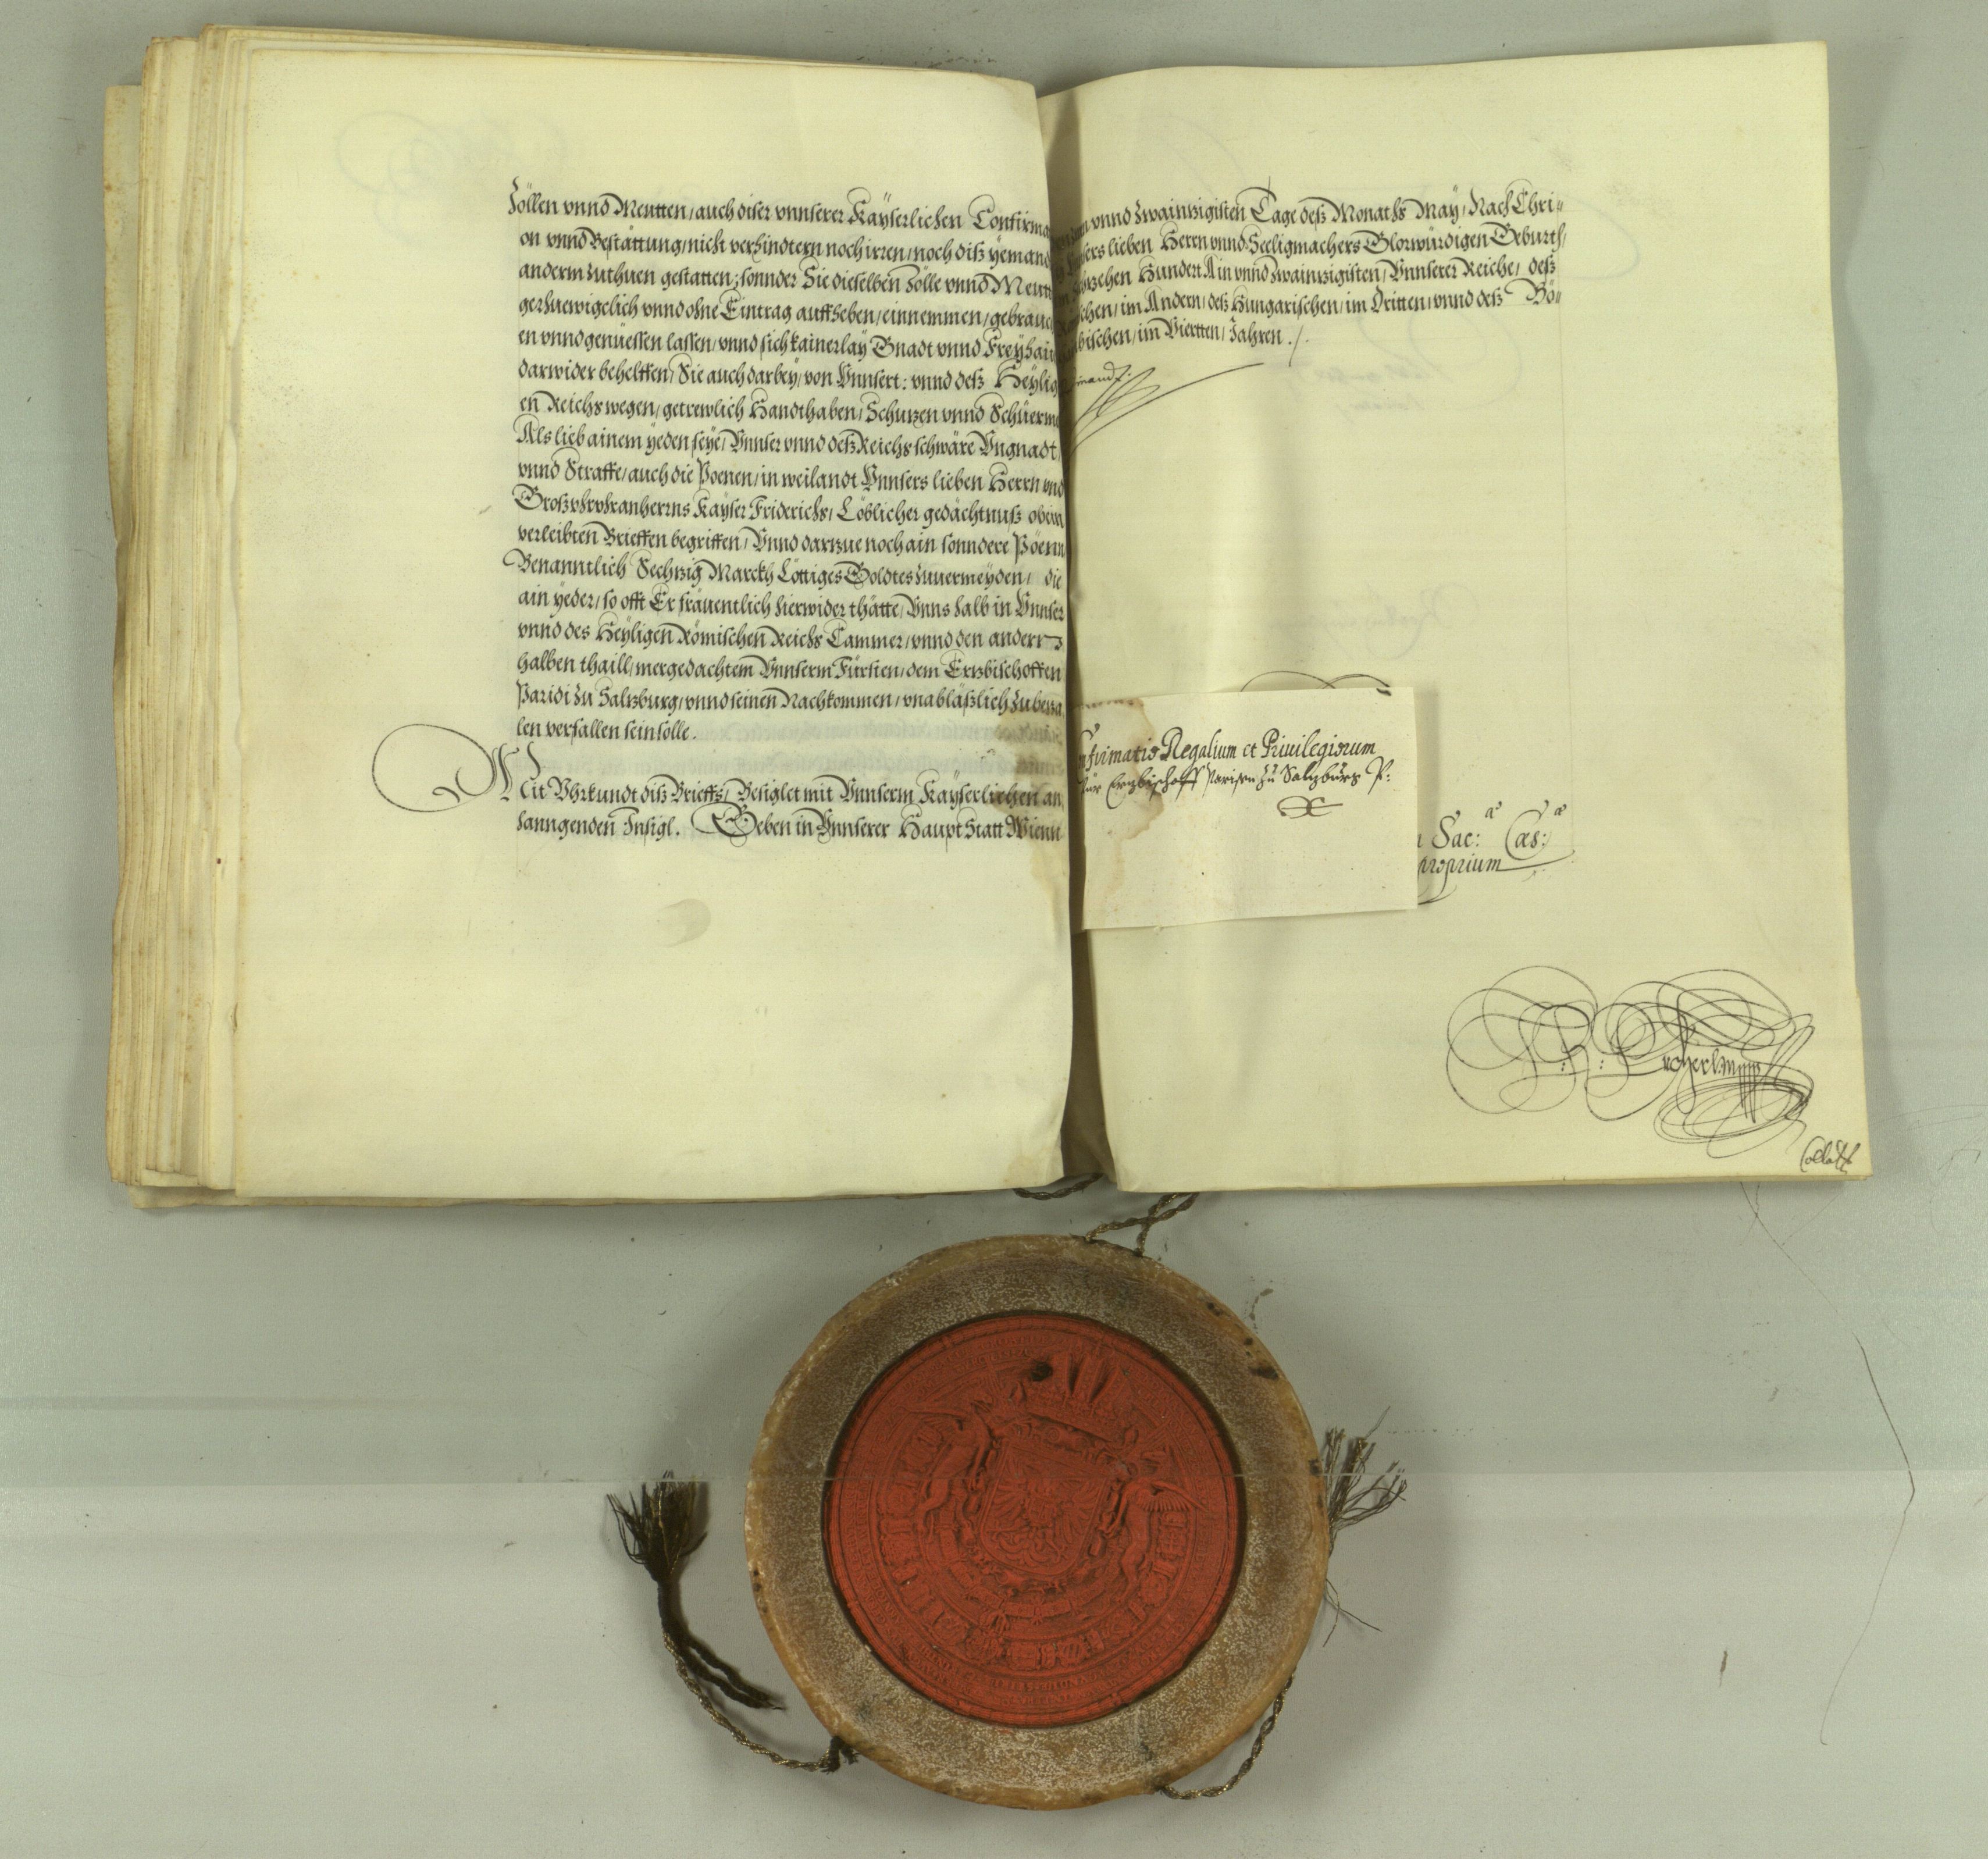 Zöllen vnnd Meutten, auch diser vnnserer Kayserlichen Confirma
on vnnd Bestättung, nicht verhindtern noch irren, noch diß yemand
anderm zuthuen gestatten; sonnder Sie dieselben Zölle vnnd Meutt
geruewigelich vnnd ohne Eintrag auffheben, einnemmen, gebrauch
en vnnd genüessen lassen, vnnd sich kainerlay Gnadt vnnd Freyhait
darwider behelffen, Sie auch darbey, von Vnnsert: vnnd deß Heylig
en Reichs wegen, getrewlich Handthaben, Schutzen vnnd Schüerme
Als lieb ainem yeden seye, Vnnser vnnd deß Reichs schwäre Vngnadt
vnnd Straffe, auch die Poenen, in weilandt Vnnsers lieben Herrn vnd
Großvhrvhranherrns Kayser Friderichs, Löblicher gedächtnuß obein
verleibten Brieffen begriffen, Vnnd dartzue noch ain sonndere Pöenn
Benanntlich Sechtzig Marckh Löttiges Goldtes zuuermeyden, die
ain yeder, so offt Er fräuentlich hierwider thätte, Vnns halb in Vnnser
vnnd des Heyligen Römischen Reichs Cammer, vnnd den andern
halben thaill, mergedachtem Vnnserm Fürsten, dem Ertzbischoffen
Paridi zu Saltzburg, vnnd seinen Nachkommen, vnabläßlich zubeza
len verfallen sein solle.
Mit Vhrkundt diß Brieffs, Besiglet mit Vnnserm Kayserlichen an
hanngenden Insigl. Geben in Vnnserer Haupt Statt Wienn
vnnd zwaintzigisten Tage deß Monaths May, Nach Chri=
sers lieben Herrn vnnd Seeligmachers Glorwürdigen Geburth,
zehen Hundert Ain vnnd zwaintzigisten, Vnnserer Reiche, deß
schen, im Andern, deß Hungarischen, im Dritten, vnnd deß Bö=
haibischen, im Viertten, Jahren ./.
inandt.
nfirmatio Regalium et Priuilegiorum
für Ertzbischoff Parisen zu Saltzburg P:
Sac: Cæs:
proprium
Collat